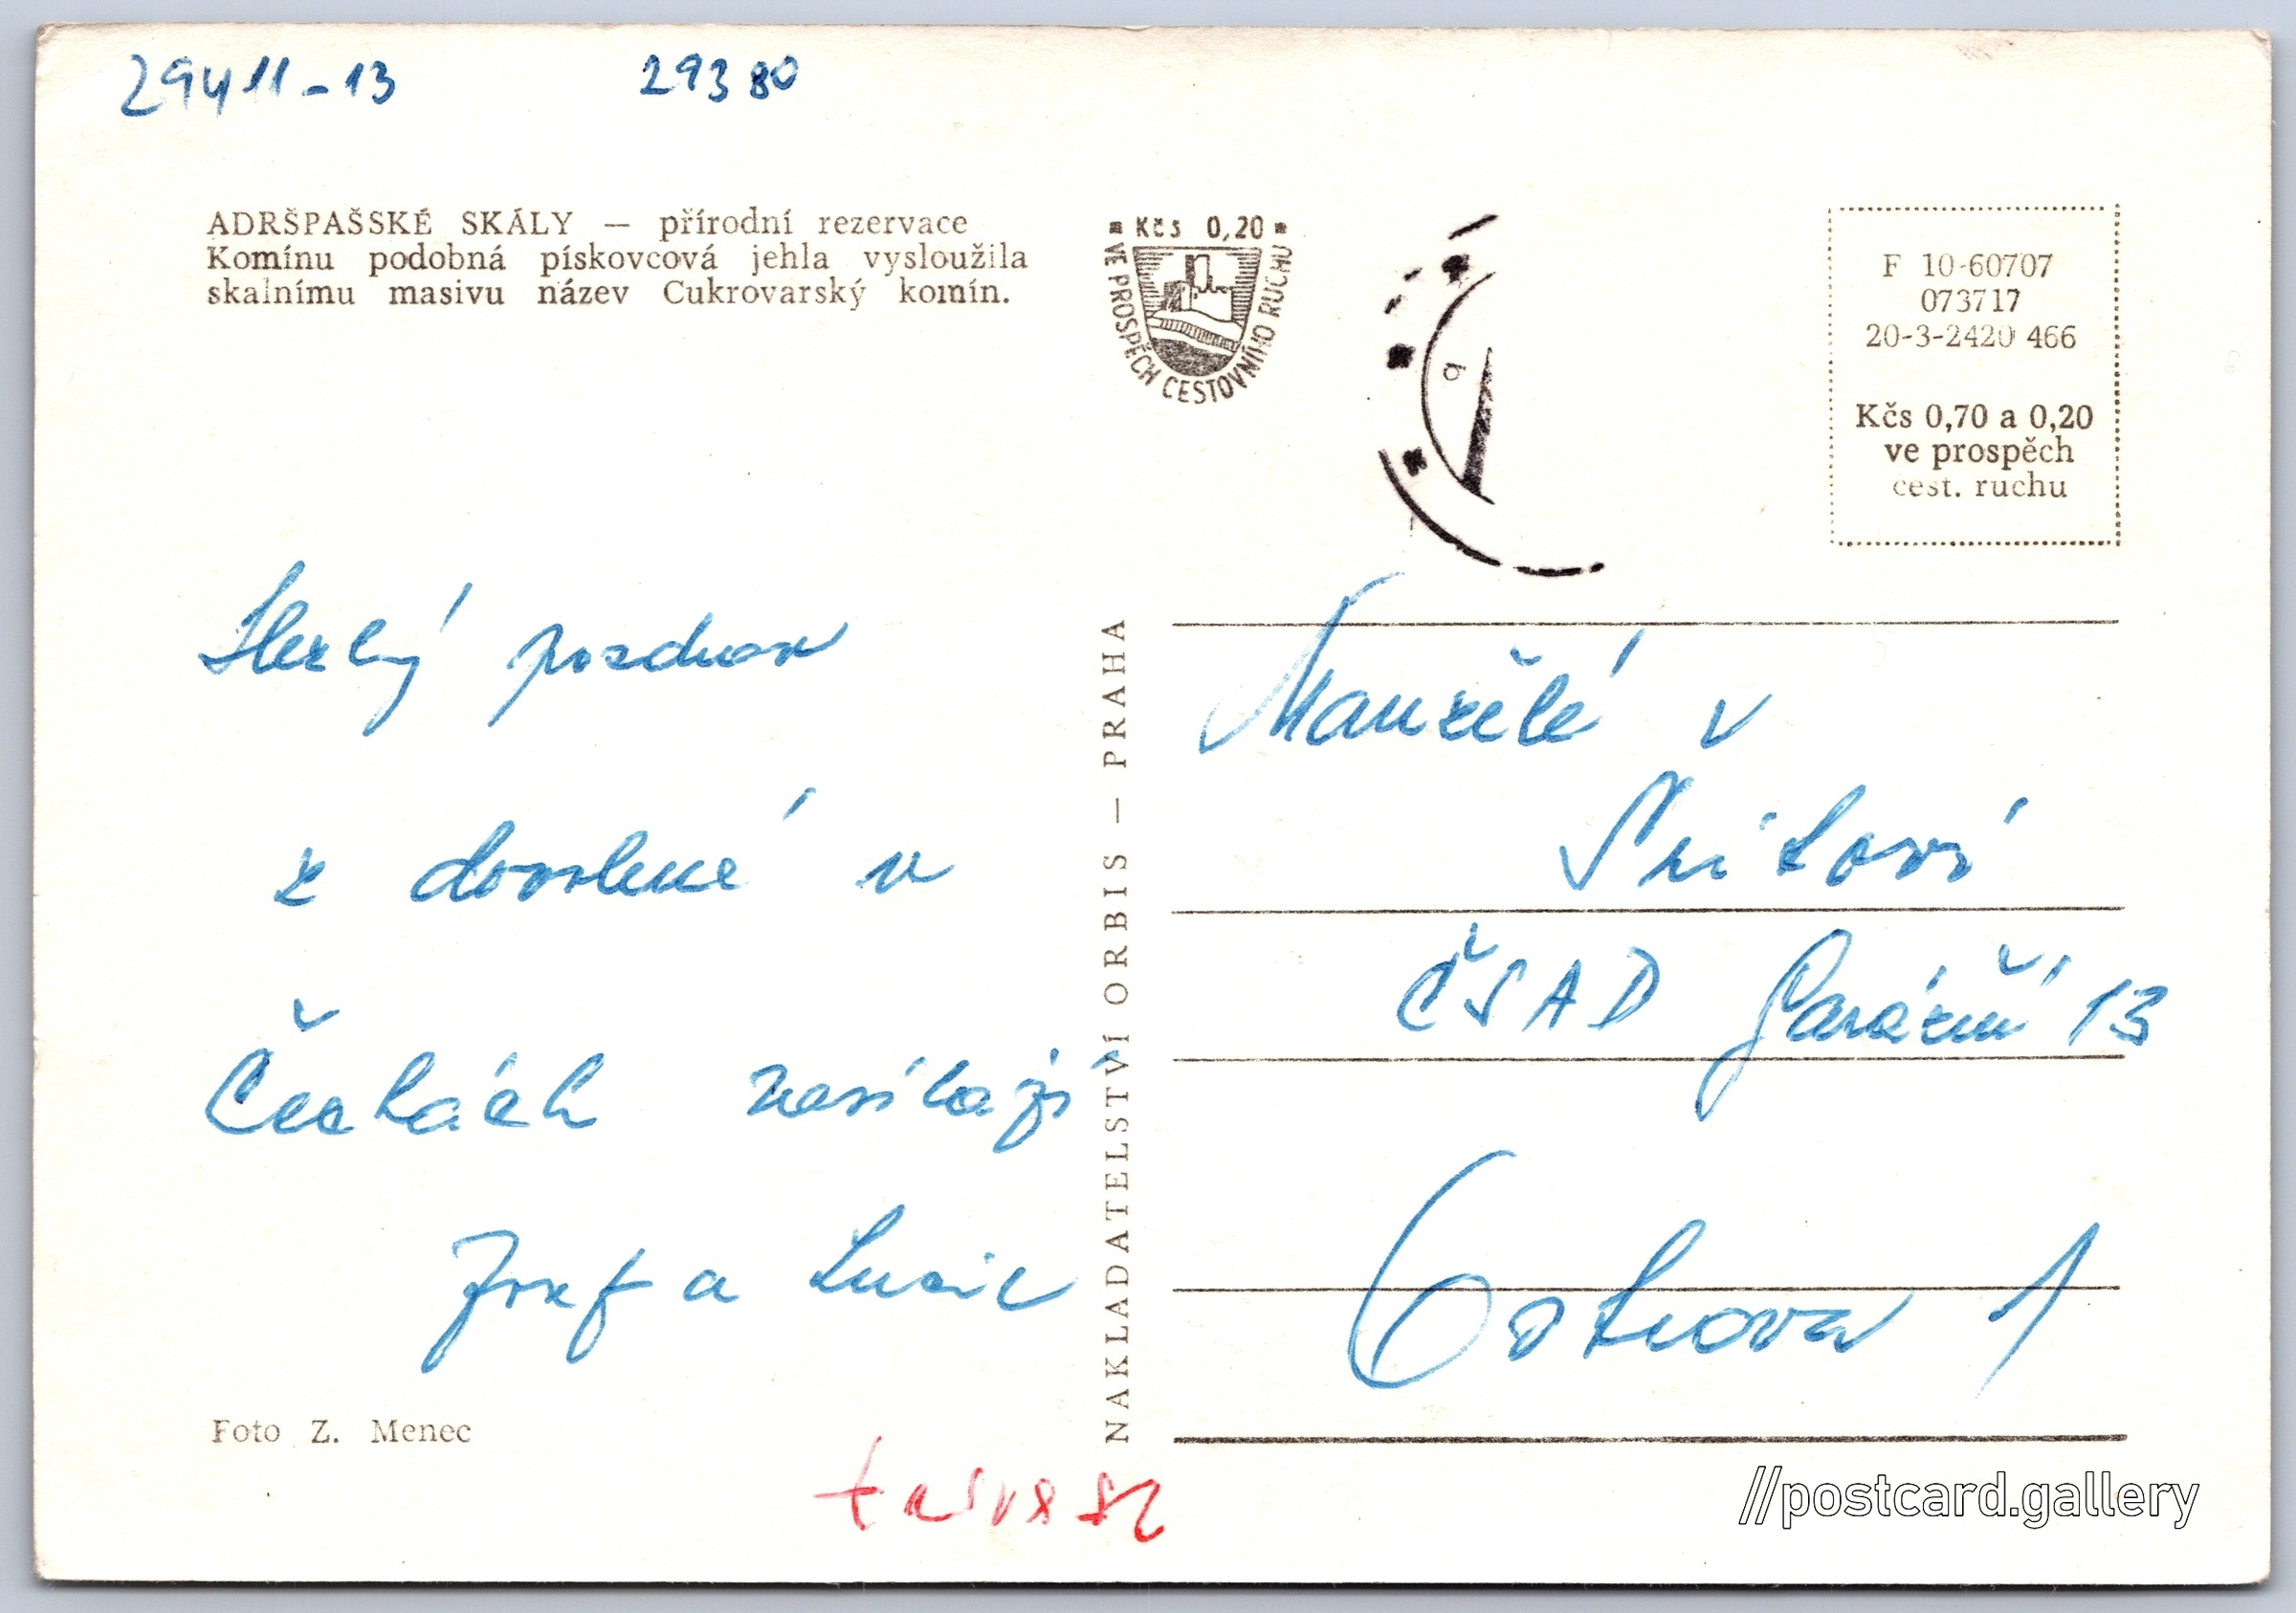 29411-13 29380
ADRŠPAŠSKÉ SKÁLY — přírodní rezervace
Komínu podobná pískovcová jehla vysloužila
skalnímu masivu název Cukrovarský komín.
Kčs 0,20
VE PROSPĚCH CESTOVNÍHO RUCHU
F 10-60707
073717
20-3-2420 466
Kčs 0,70 a 0,20
ve prospěch
cest. ruchu
Herlý pozdrav
z dovolené v
Čechách zasílají
Josef a Lucie
Foto Z. Menec
NAKLADATELSTVÍ ORBIS — PRAHA
Manželé v
ČSAD Garážní 13
Ostrava 1
//postcard.gallery